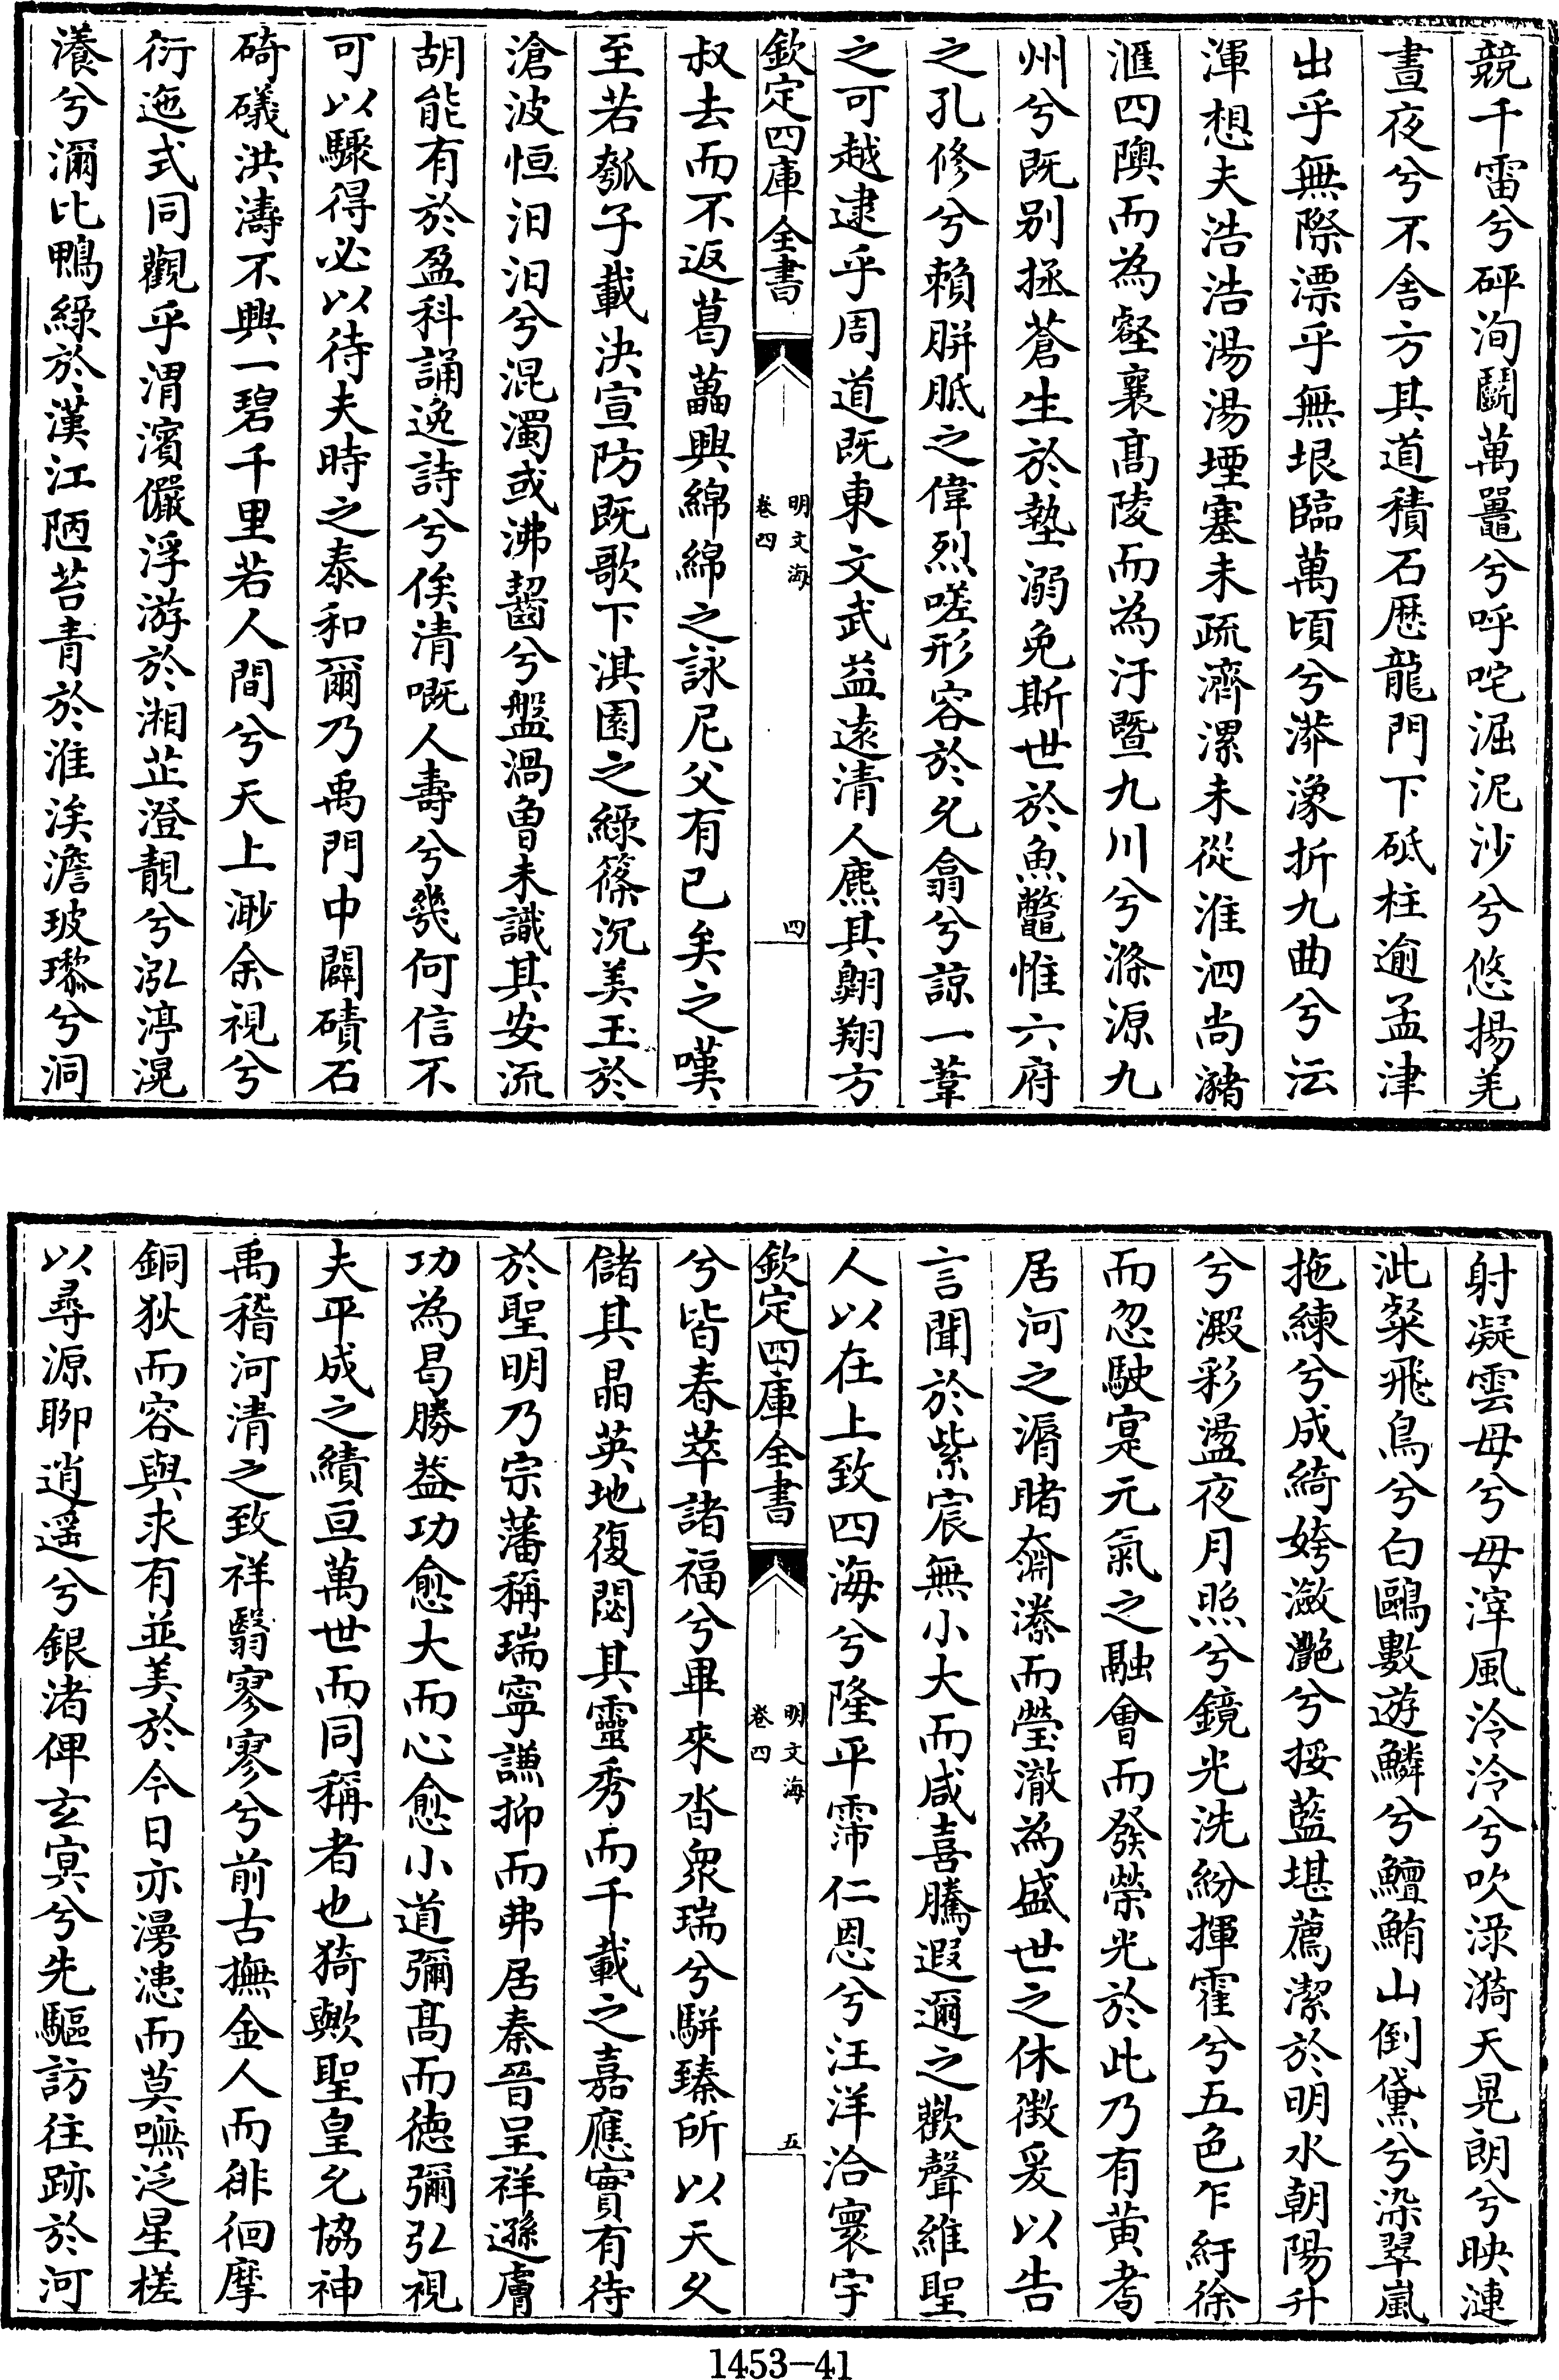 競千雷兮砰洶鬭萬鼉兮呼咤淈泥沙兮悠揚羌
晝夜兮不舎方其道積石厯龍門下砥柱逾孟津
出乎無際漂乎無垠臨萬頃兮漭瀁折九曲兮沄
渾想夫浩浩湯湯堙塞未疏濟漯未從淮泗尚瀦
滙四隩而為壑襄髙陵而為汙暨九川兮滌源九
州兮既别拯蒼生於墊溺免斯世於魚鼈惟六府
之孔修兮賴胼胝之偉烈嗟形容於乆翕兮諒一葦
之可越逮乎周道既東文武益遠清人麃其翺翔方
欽定四庫全書
明文海
卷四
四
叔去而不返葛藟興綿綿之詠尼父有已矣之嘆
至若瓠子載決宣防既歌下淇園之綠篠沉美玉於
滄波恒汨汨兮混濁或沸齧兮盤渦曾未識其安流
胡能有於盈科誦逸詩兮俟清嘅人壽兮幾何信不
可以驟得必以待夫時之泰和爾乃禹門中闢磧石
碕礒洪濤不興一碧千里若人間兮天上渺余視兮
衍迤式同觀乎渭濱儼浮游於湘芷澄靚兮泓渟滉
瀁兮瀰比鴨綠於漢江陋苔青於淮涘澹玻瓈兮洞
射凝雲母兮毋滓風泠泠兮吹淥漪天晃朗兮映漣
泚粲飛鳥兮白鷗數遊鱗兮鱣鮪山倒黛兮染翠嵐
拖練兮成綺姱瀲灔兮挼藍堪薦潔於明水朝陽升
兮澱彩盪夜月照兮鏡光洗紛揮霍兮五色乍紆徐
而忽駛寔元氣之融會而發榮光於此乃有黄耉
居河之漘睹奫潫而瑩澈為盛世之休徴爰以告
言聞於紫宸無小大而咸喜騰遐邇之歡聲維聖
人以在上致四海兮隆平霈仁恩兮汪洋洽寰宇
欽定四庫全書
明文海
卷四
五
兮皆春萃諸福兮畢來沓衆瑞兮駢臻所以天乆
儲其晶英地復閟其靈秀而千載之嘉應實有待
於聖明乃宗藩稱瑞寧謙抑而弗居秦晉呈祥遜膚
功為曷勝葢功愈大而心愈小道彌髙而德彌弘視
夫平成之績亘萬世而同稱者也猗歟聖皇允協神
禹稽河清之致祥翳寥寥兮前古撫金人而徘徊摩
銅狄而容與求有並美於今日亦漫漶而莫嘸泛星槎
以尋源聊逍遥兮銀渚俾玄冥兮先驅訪往跡於河
1453-41